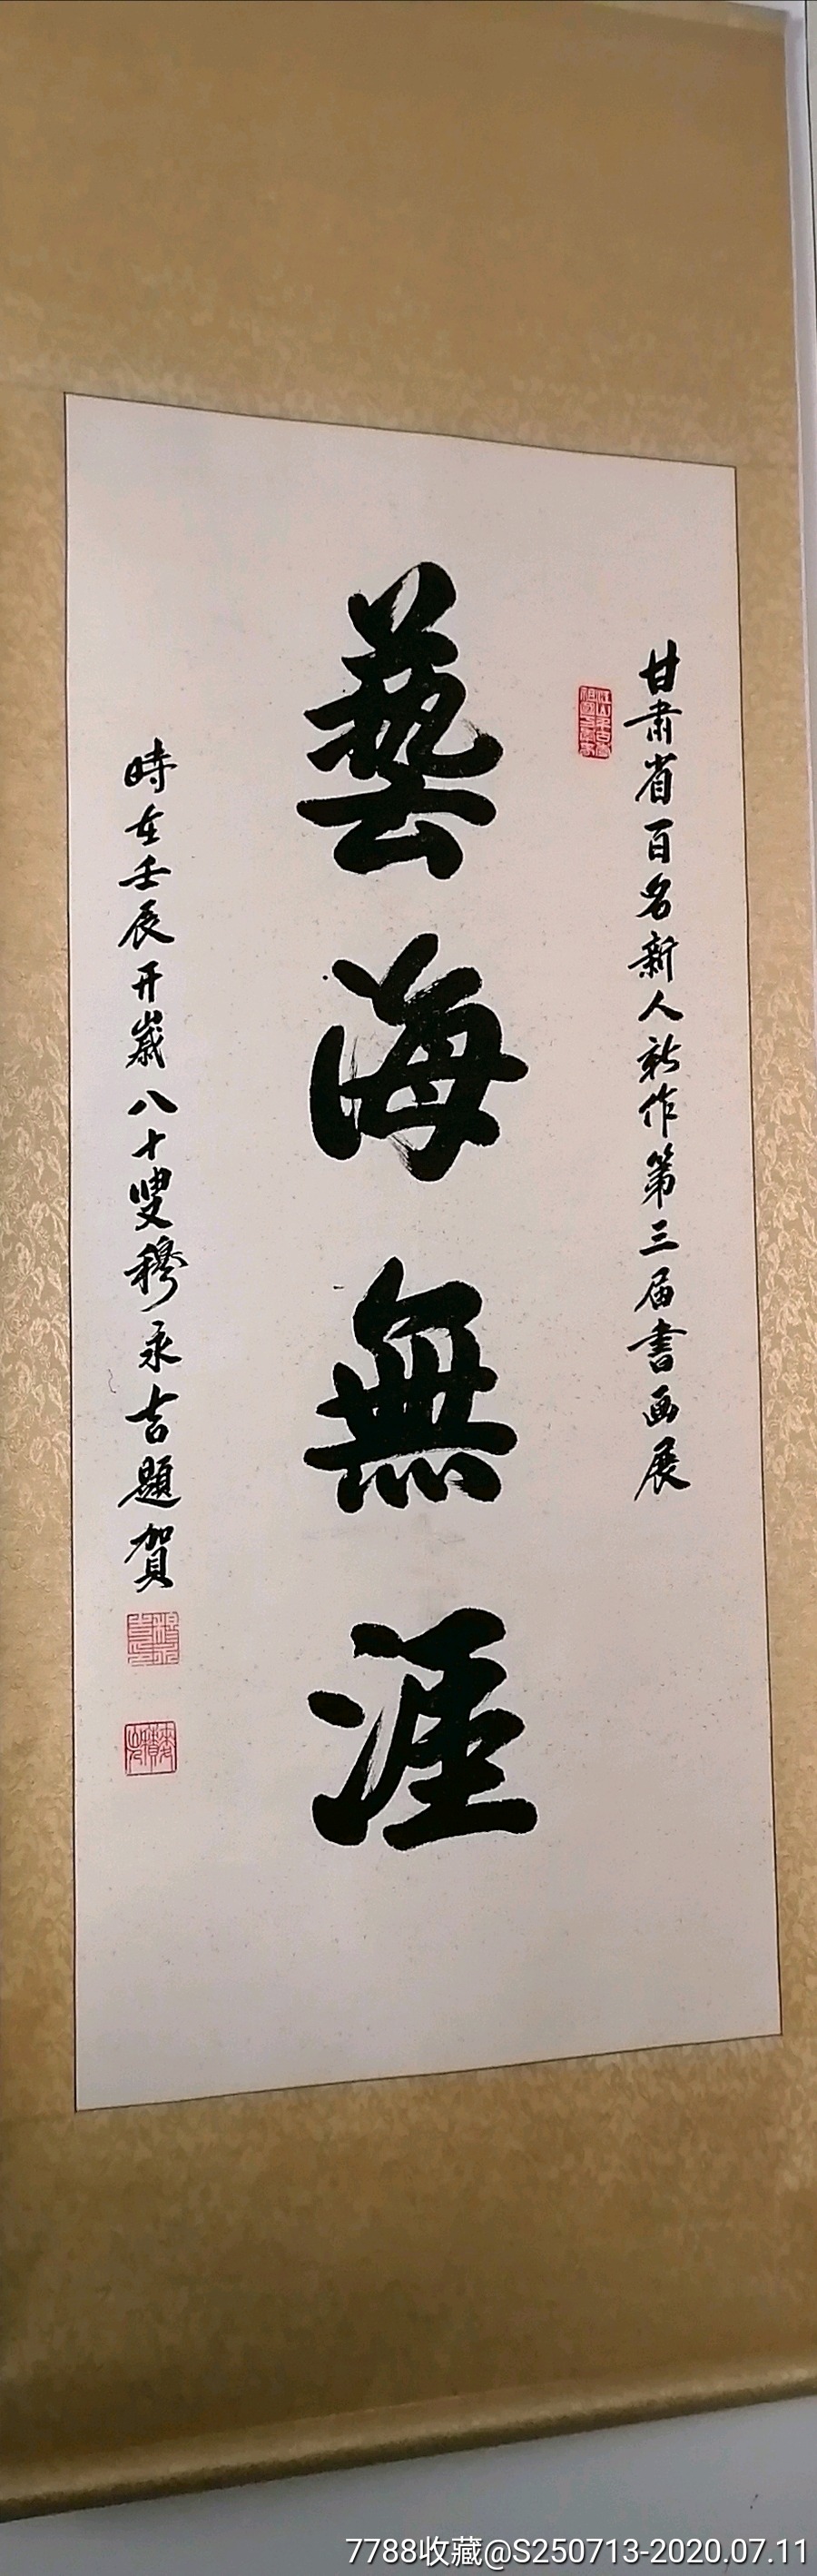 甘肃省百名新人新作第三届書画展
藝海無涯
時在壬辰开歲八十叟穆永吉題賀
7788收藏@S250713-2020.07.11